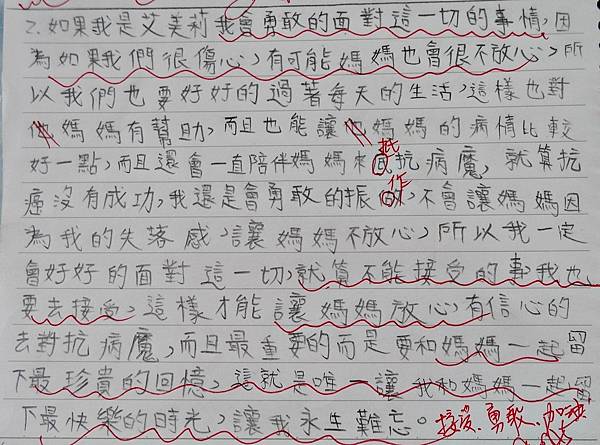 2.如果我是艾美莉我會勇敢的面對這一切的事情,因
為如果我們很傷心,有可能媽媽也會很不放心,所
以我們也要好好的過著每天的生活,這樣也對
媽媽有幫助,而且也能讓媽媽的病情比較
好一點,而且還會一直陪伴媽媽來抵抗病魔,就算抗
癌沒有成功,我還是會勇敢的振作,不會讓媽媽因
為我的失落感,讓媽媽不放心,所以我一定
會好好的面對這一切,就算不能接受的事,我也
要去接受,這樣才能讓媽媽放心,有信心的
去對抗病魔,而且最重要的而是要和媽媽一起留
下最珍貴的回憶,這就是唯一讓我和媽媽一起留
下最快樂的時光,讓我永生難忘。接受、勇敢、